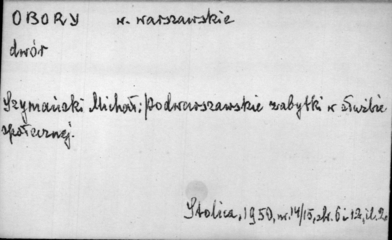 OBORY w. warszawskie
dwór
Szymański Michał: Podwarszawskie zabytki w służbie
społecznej.
Stolica, 1950, nr. 14/15, str. 6 i 12, il. 2.